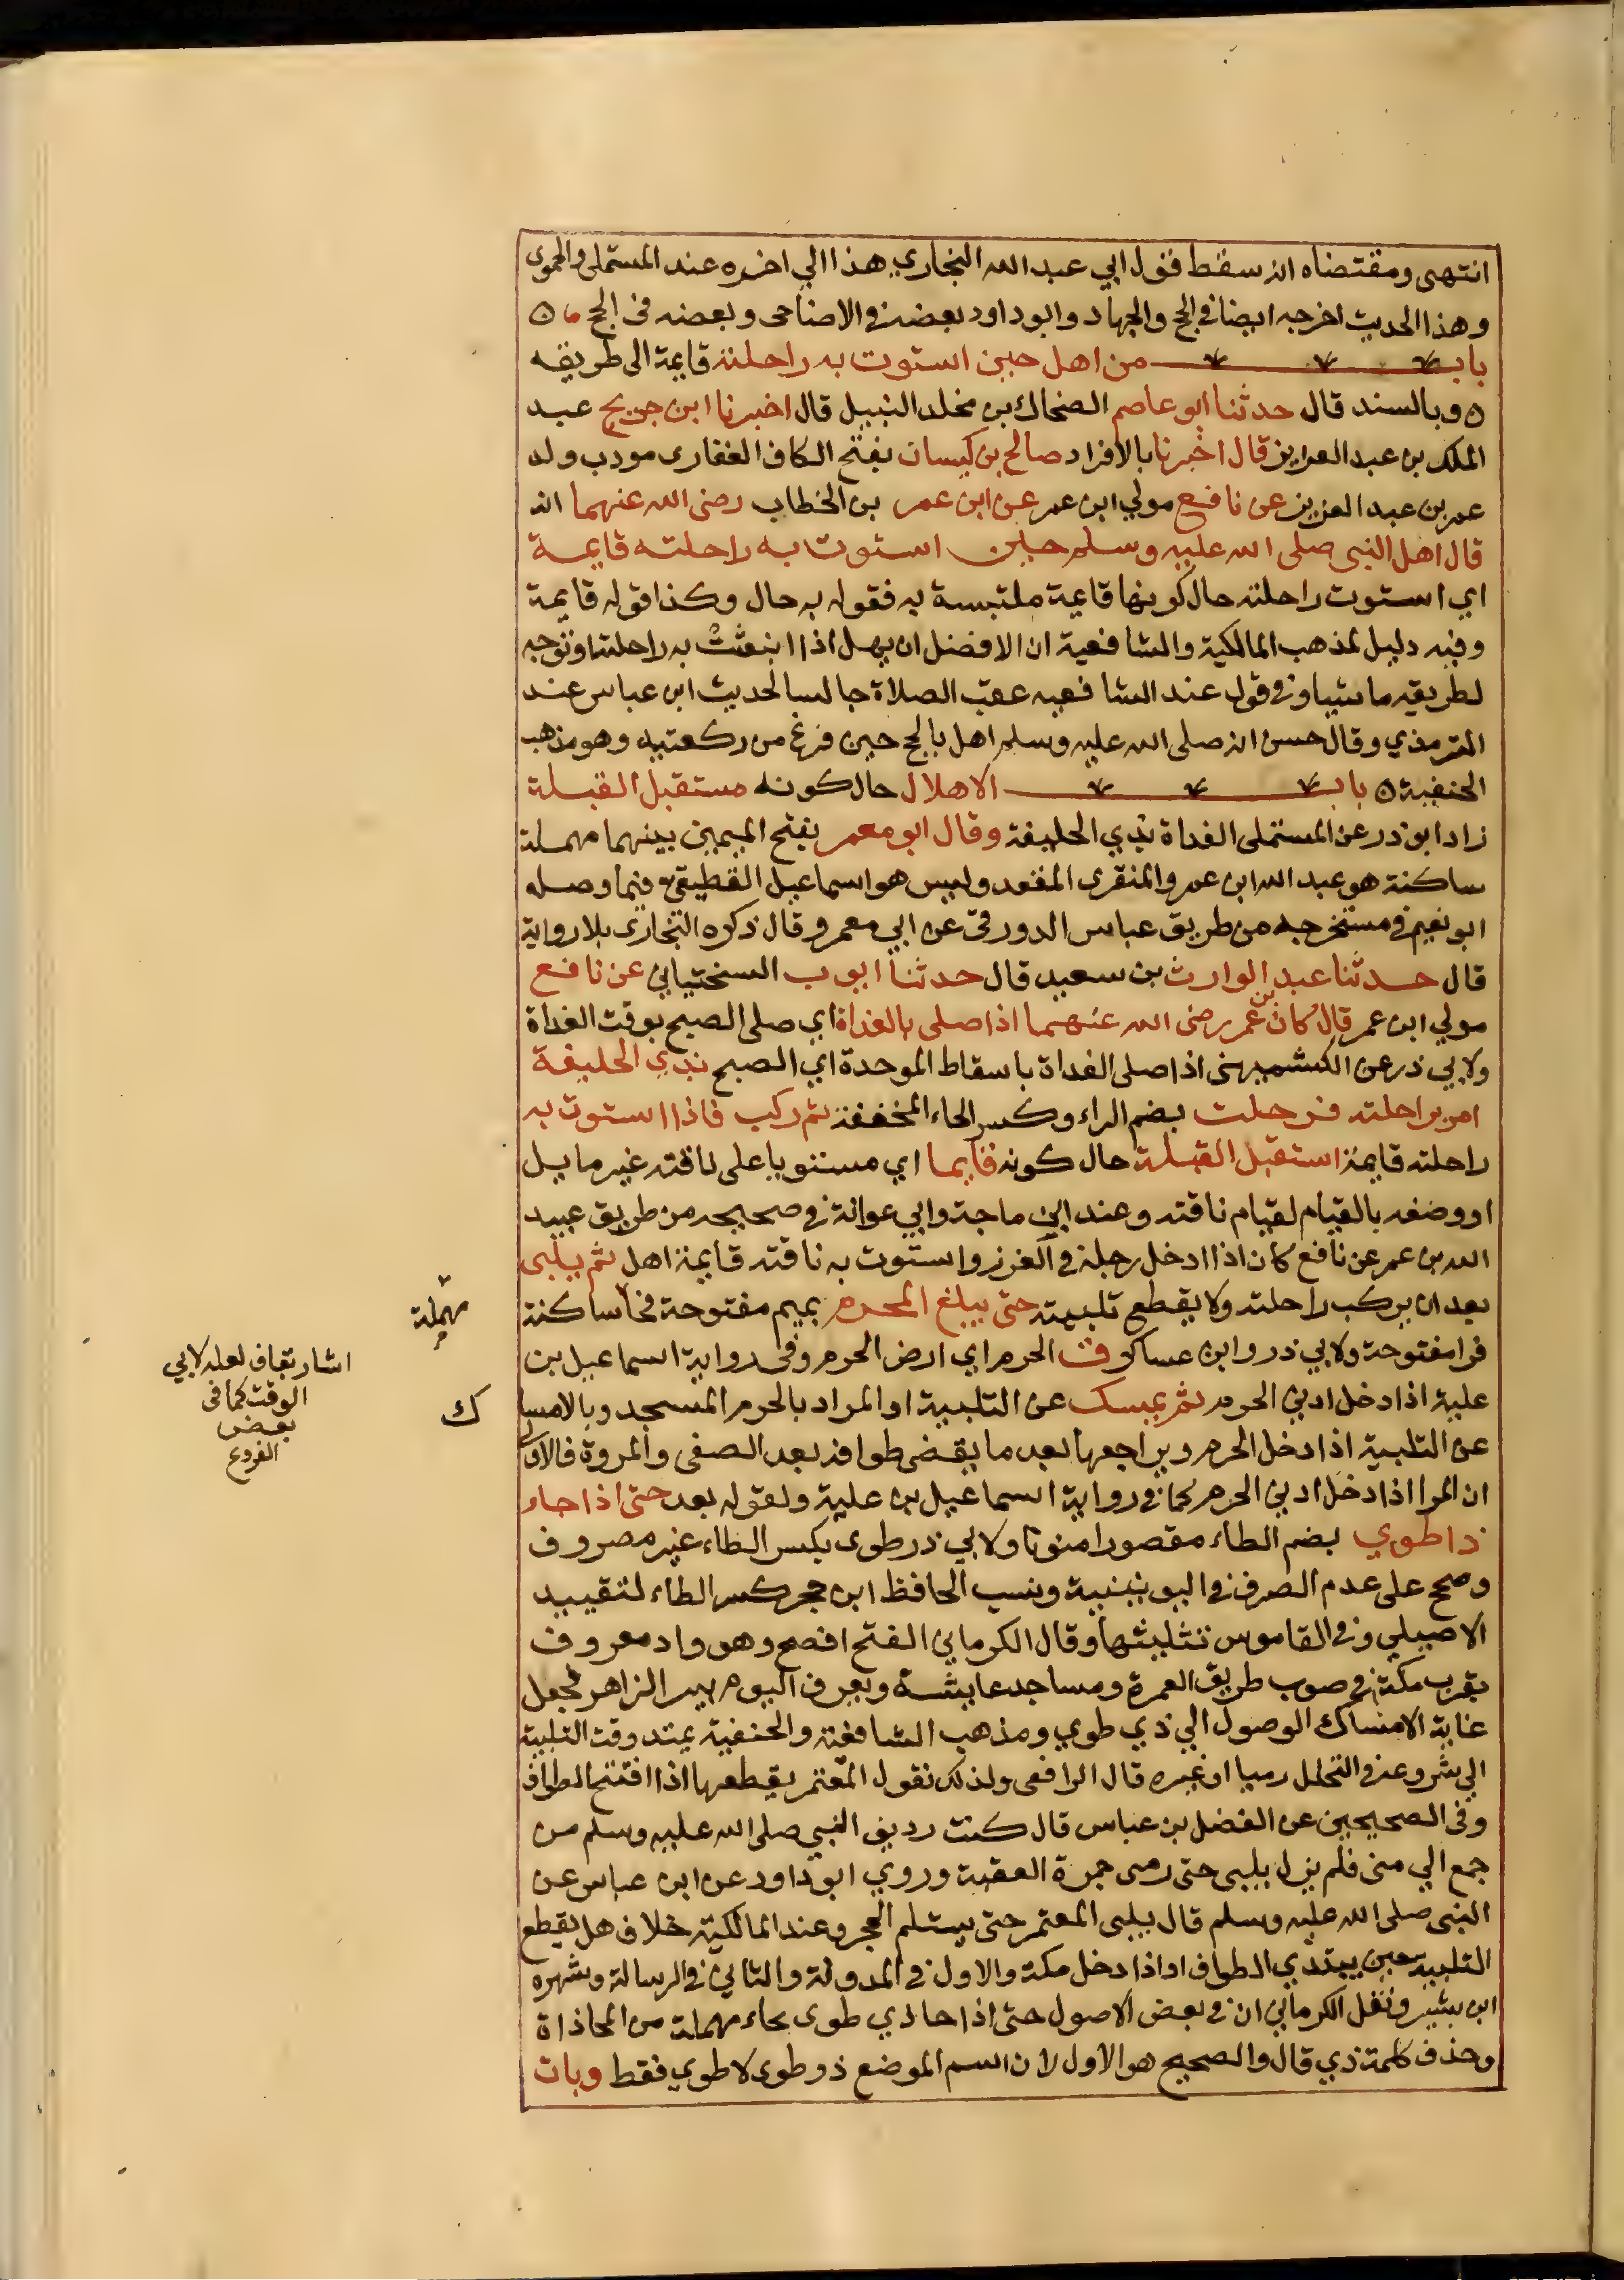 انتهى ومقتضاه انه سقط قول ابي عبد الله البخاري هذا الي اخره عند المستملي والحموى
وهذا الحديث اخرجه ايضا في الحج والجهاد وابو داود بعضه في الاضاحى وبعضه فى الحج
باب من اهل حين استوت به راحلته قايمة الى طريقه
وبالسند قال حدثنا ابو عاصم الضحاك بن مخلد النبيل قال اخبرنا ابن جريج عبد
الملك بن عبد العزيز قال اخبرنا بالافراد صالح بن كيسان بفتح الكاف الغفارى مودب ولد
عمر بن عبد العزيز عن نافع مولي ابن عمر عن ابن عمر بن الخطاب رضى الله عنهما انه
قال اهل النبي صلى الله عليه وسلم حين استوت به راحلته قايمة
اي استوت راحلته حال كونها قايمة ملتبسة به فقوله به حال وكذا قوله قايمة
وفيه دليل لمذهب المالكية والشافعية ان الافضل ان يهل اذا انبعثت به راحلته او توجه
لطريقه ماشيا وفي قول عند الشافعيه عقب الصلاة جالسا لحديث ابن عباس عند
الترمذي وقال حسن انه صلى الله عليه وسلم اهل بالحج حين فرغ من ركعتيه وهو مذهب
الحنفية باب الاهلال حال كونه مستقبل القبلة
زاد ابو ذر عن المستملى الغداة بذي الحليفة وقال ابو معمر بفتح الميمين بينهما مهملة
ساكنة هو عبد الله ابن عمرو المنقرى المقعد وليس هو اسماعيل القطيعي فيما وصله
ابو نعيم في مستخرجه من طريق عباس الدورقى عن ابي معمر وقال ذكره البخارى بلا رواية
قال حدثنا عبد الوارث بن سعيد قال حدثنا ايوب السختياني عن نافع
مولي ابن عمر قال كان بن عمر رضى الله عنهما اذا صلى بالغداة اي صلى الصبح بوقت الغداة
ولابي ذر عن الكشميهنى اذا صلى الغداة باسقاط الموحدة اي الصبح بذي الحليفة
امر براحلته فرحلت بضم الراء وكسر الحاء المخففة ثم ركب فاذا استوت به
راحلته قايمة استقبل القبلة حال كونه قايما اي مستويا على ناقته غير مايل
او وصفه بالقيام لقيام ناقته وعند ابي ماجة وابي عوانة في صحيحه من طريق عبيد
الله بن عمر عن نافع كان اذا ادخل رجله في الغرز واستوت به ناقته قايمة اهل ثم يلبى
بعد ان يركب راحلته ولا يقطع تلبيته حتى يبلغ المحرم بميم مفتوحة فحا ساكنة
فرا مفتوحة ولابي ذر وابن عساكر وق الحرم اي ارض الحرم وفى رواية اسماعيل بن
علية اذا دخل ادنى الحرم ثم يمسك عن التلبية او المراد بالحرم المسجد وبالامسا
عن التلبية اذا دخل الحرم ويراجعها بعد ما يقضى طوافه بعد الصفى والمروة فالاولى
ان المرا اذا دخل ادني الحرم كما في رواية اسماعيل بن علية ولقوله بعد حتى اذا جاء
ذا طوي بضم الطاء مقصورا منونا ولابي ذر طوى بكسر الطاء غير مصروف
وصحح على عدم الصرف في اليونينية ونسب الحافظ ابن حجر كسر الطاء لتقييد
الاصيلي وفي القاموس تثليثها وقال الكرماني الفتح افصح وهو واد معروف
بقرب مكة في صوب طريق العمرة ومساجد عايشة ويعرف اليوم ببير الزاهر فجعل
غاية الامساك الوصول الي ذي طوي ومذهب الشافعية والحنفية يمتد وقت التلبية
الي شروعه في التحلل رميا او غيره قال الرافعى ولذلك نقول المعتمر يقطعها اذا افتتح الطواف
وفى الصحيحين عن الفضل بن عباس قال كنت رديف النبي صلى الله عليه وسلم من
جمع الي منى فلم يزل يلبى حتى رمى جمرة العقبة وروي ابو داود عن ابن عباس عن
النبى صلى الله عليه وسلم قال يلبى المعتمر حتى يستلم الحجر وعند المالكية خلاف هل يقطع
التلبية حين يبتدي الطواف او اذا دخل مكة والاول في المدونة والثاني في الرسالة وشهره
ابن بشير ونقل الكرماني ان في بعض الاصول حتى اذا حاذي طوى بحاء مهملة من المحاذاة
وحذف كلمة ذي قال والصحيح هو الاول لان اسم الموضع ذو طوى لا طوي فقط وبات
مهملة
ك
اشار بقاف لعله لابي
الوقت كما فى
بعض
الفروع